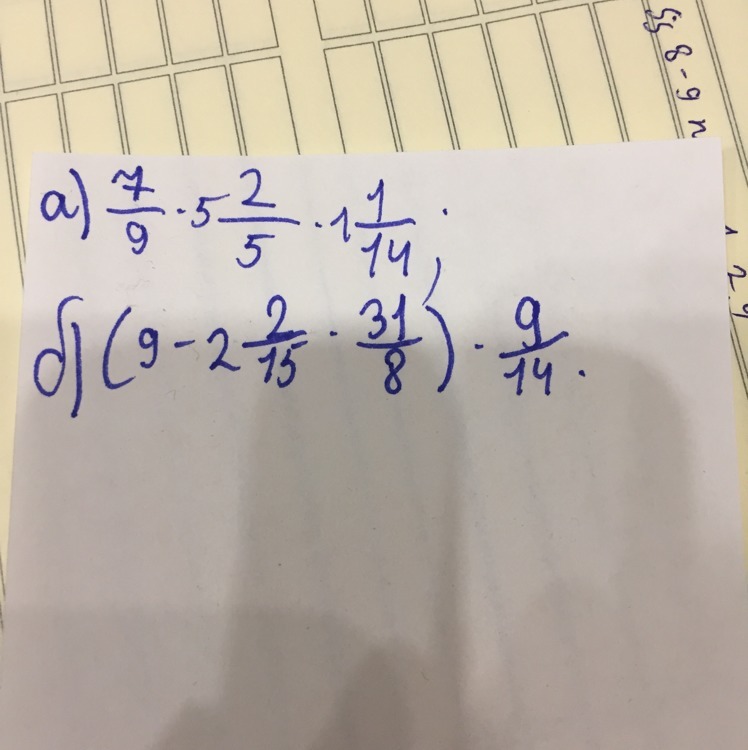 §§ 8-9 п
1 2 9
а) 7/9 · 5 2/5 · 1 1/14 ;
б) (9 - 2 2/15 · 31/8) · 9/14.